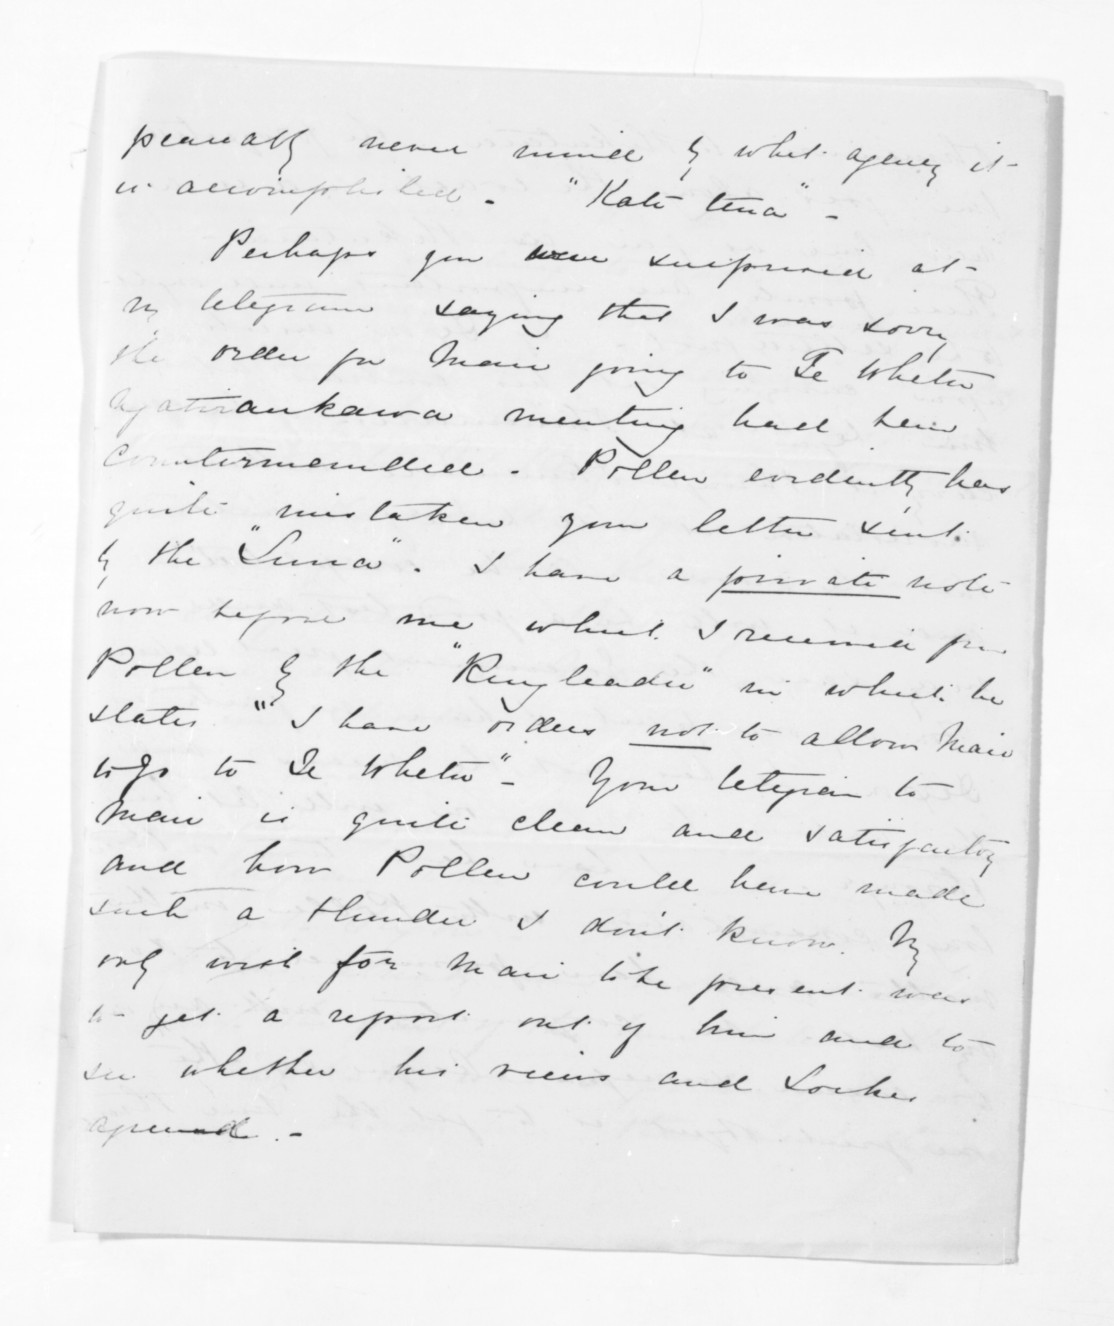 peaceably never mind by what agency it
is accomplished. "Kati tena" -
Perhaps you were surprised at
my telegram saying that I was sorry
the order for Mair going to Te Whetu
Ngatiraukawa meeting had been
Countermanded. Pollen evidently has
quite mistaken your letter sent
by the "Luna". I have a private note
now before me which I received from
Pollen by the "Ringleader" in which he
states "I have orders not to allow Mair
to go to Te Whetu" - Your telegram to
Mair is quite clear and satisfactory
and how Pollen could have made
such a blunder I don't know. My
only wish for Mair to be present was
to get a report out of him and to
see whether his views and Lockes
agreed. -